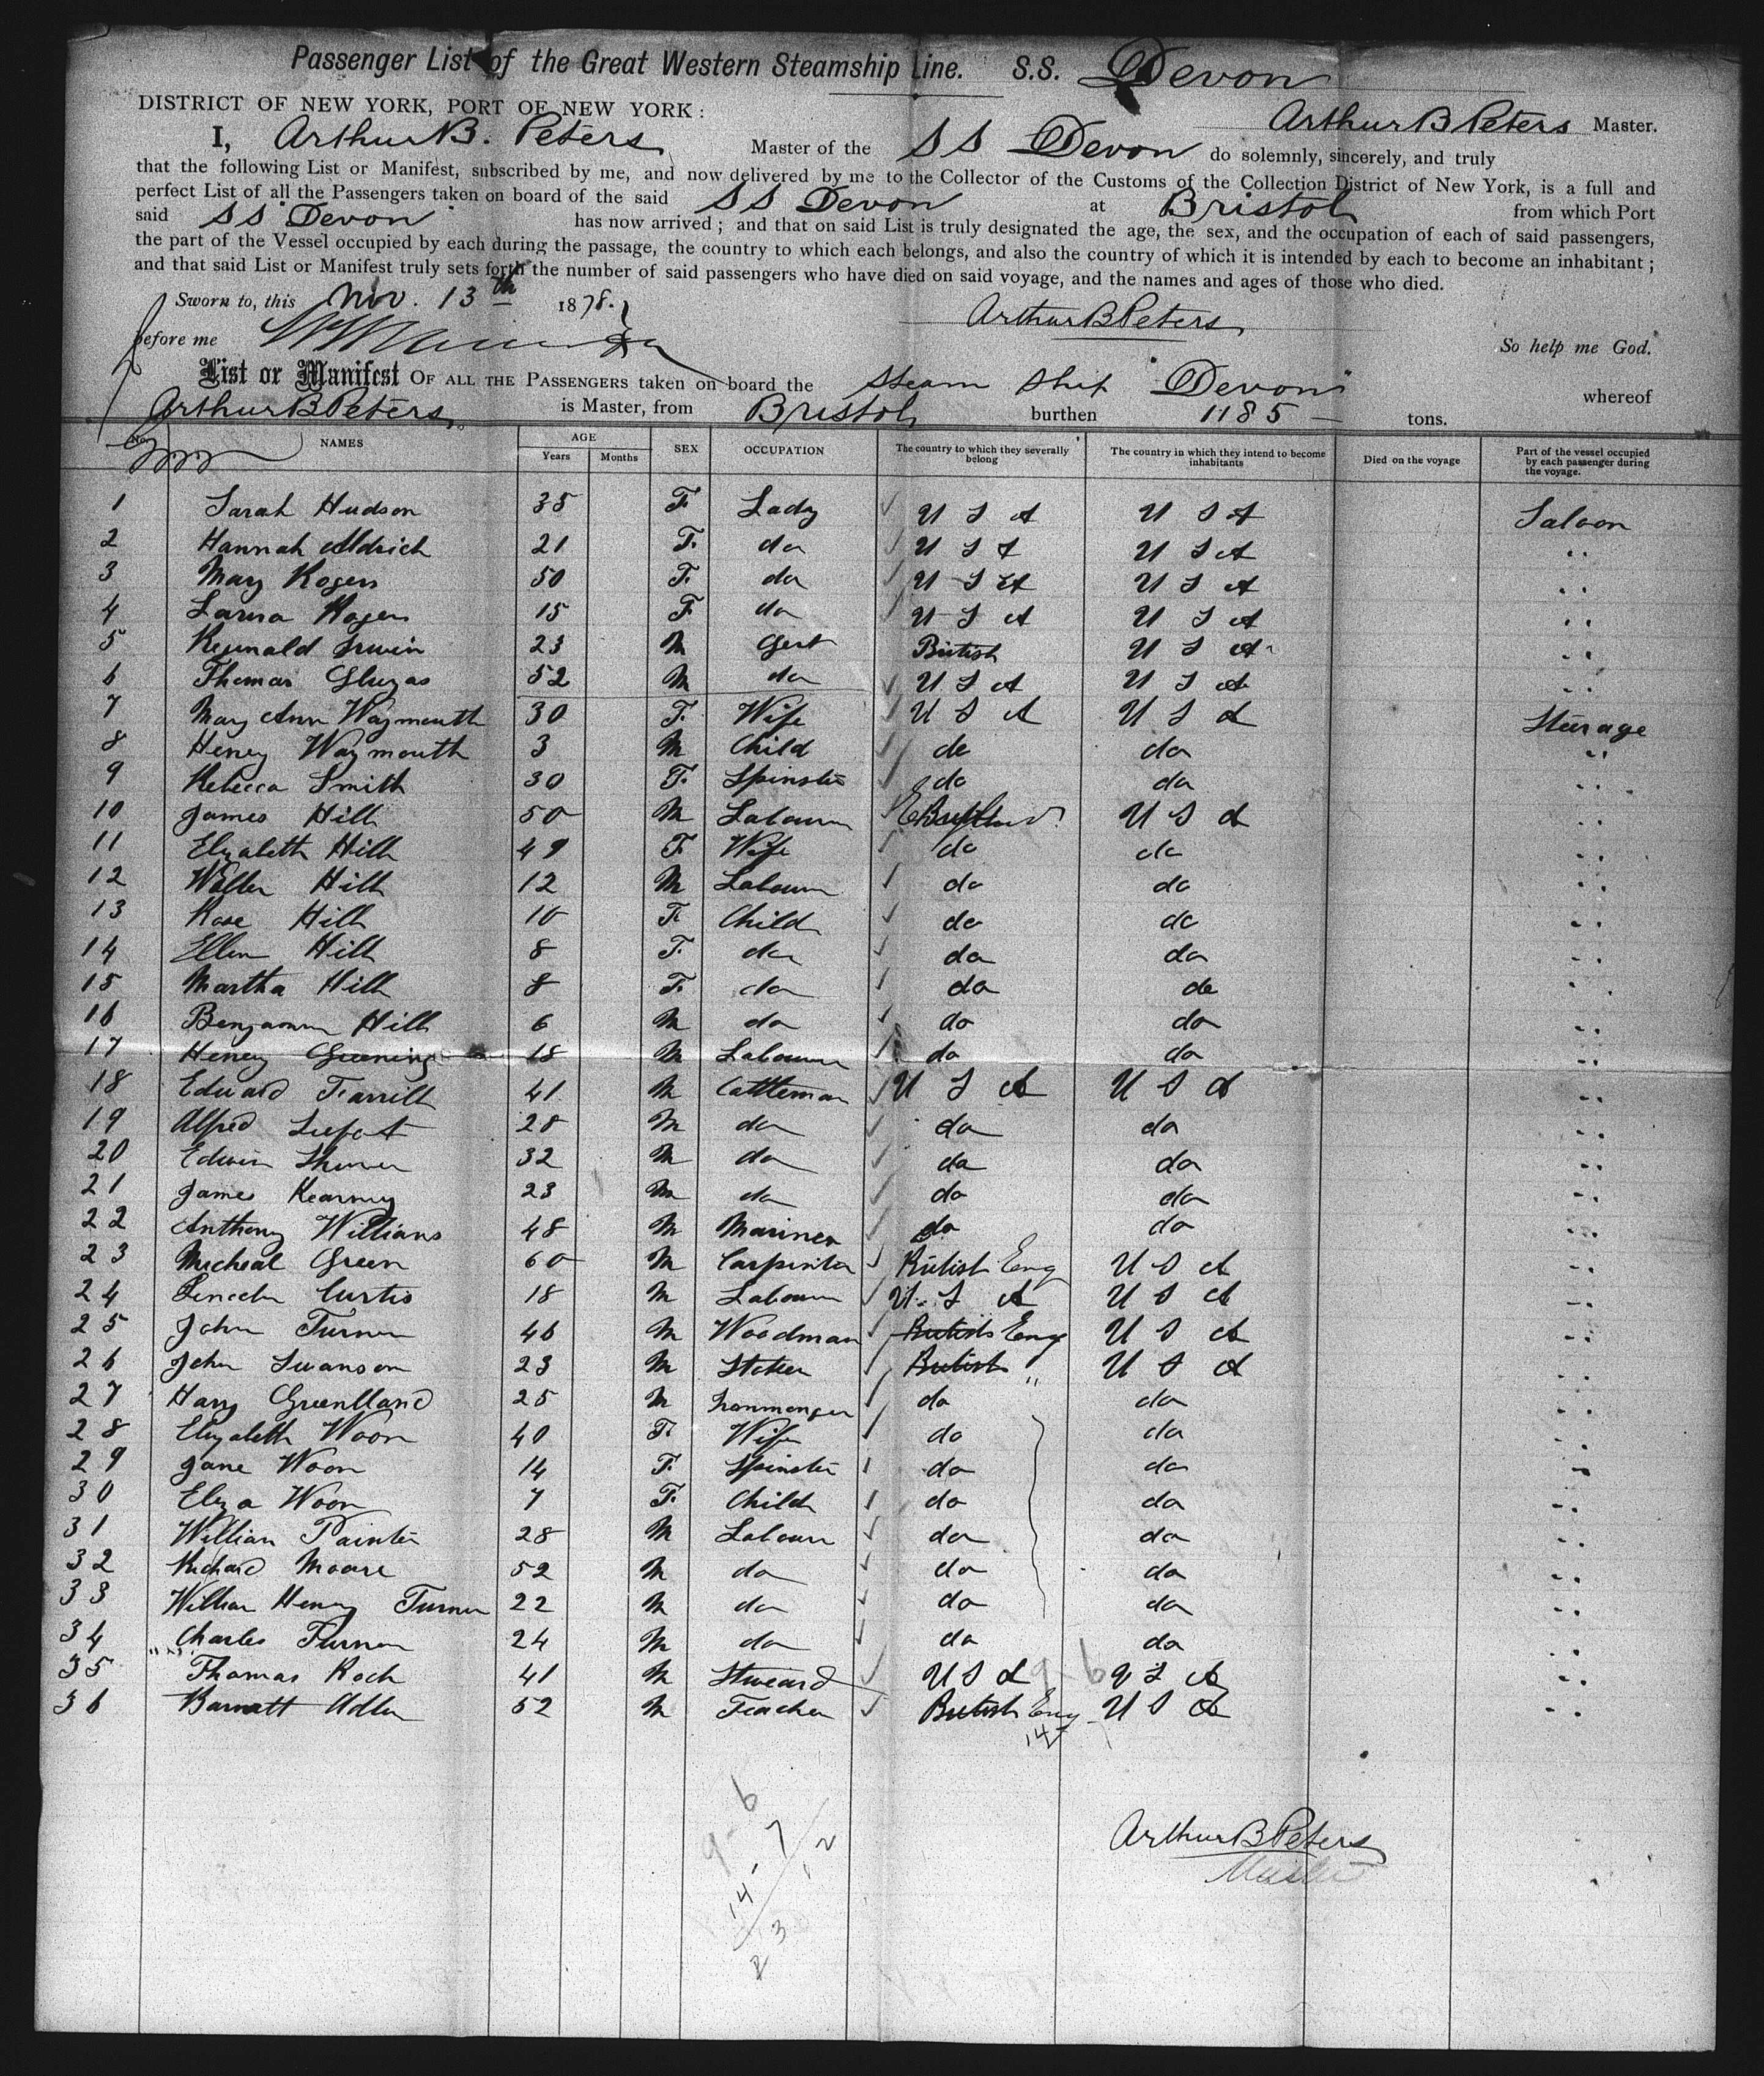 Passenger List of the Great Western Steamship Line. S.S. Devon
DISTRICT OF NEW YORK, PORT OF NEW YORK: Arthur B Peters Master.
I, Arthur B. Peters Master of the SS Devon do solemnly, sincerely, and truly
that the following List or Manifest, subscribed by me, and now delivered by me to the Collector of the Customs of the Collection District of New York, is a full and
perfect List of all the Passengers taken on board of the said SS Devon at Bristol from which Port
said SS "Devon" has now arrived; and that on said List is truly designated the age, the sex, and the occupation of each of said passengers,
the part of the Vessel occupied by each during the passage, the country to which each belongs, and also the country of which it is intended by each to become an inhabitant;
and that said List or Manifest truly sets forth the number of said passengers who have died on said voyage, and the names and ages of those who died.
Sworn to, this Nov. 13th 1878. Arthur B Peters
before me So help me God.
List or Manifest OF ALL THE PASSENGERS taken on board the Steam Ship "Devon" whereof
Arthur B Peters is Master, from Bristol burthen 1185 tons.
No. NAMES AGE Years Months SEX OCCUPATION The country to which they severally belong The country in which they intend to become inhabitants Died on the voyage Part of the vessel occupied by each passenger during the voyage.
1 Sarah Hudson 35 F. Lady U S A U S A Saloon
2 Hannah Aldrich 21 F. do U S A U S A "
3 Mary Rogers 50 F. do U S A U S A "
4 Rogers 15 F. do U S A U S A "
5 Reginald Irwin 23 M Gent British U S A "
6 Thomas 52 M do U S A U S A "
7 Mary Ann Waymouth 30 F. Wife U S A U S A Steerage
8 Henry Waymouth 3 M Child do do "
9 Rebecca Smith 30 F. Spinster do do "
10 James Hill 50 M Labourer U S A "
11 Elizabeth Hill 49 F. Wife do do "
12 Hill 12 M Labourer do do "
13 Rose Hill 10 F. Child do do "
14 Ellen Hill 8 F. do do do "
15 Martha Hill 8 F. do do do "
16 Benjamin Hill 6 M do do do "
17 Henry Greening 18 M Labourer do do "
18 Edward 41 M Cattleman U S A U S A "
19 Alfred 28 M do do do "
20 Edwin 32 M do do do "
21 James Kearney 23 M do do do "
22 Anthony Williams 48 M Mariner do do "
23 Micheal Green 60 M Carpenter British Eng U S A "
24 Lincoln Curtis 18 M Labourer U. S A U S A "
25 John Turner 46 M Woodman British Eng U S A "
26 John Swanson 23 M Stoker British " U S A "
27 Harry 25 M Ironmonger do do "
28 Elizabeth Woon 40 F. Wife do do "
29 Jane Woon 14 F. Spinster do do "
30 Eliza Woon 7 F. Child do do "
31 William Painter 28 M Labourer do do "
32 Richard Moore 52 M do do do "
33 William Henry Turner 22 M do do do "
34 Charles Turner 24 M do do do "
35 Thomas Roch 41 M Steward U S A U S A "
36 Barnett Adler 52 M Teacher British Eng U S A "
9-6
14
9-6
14-7
12
23
Arthur B Peters
Master